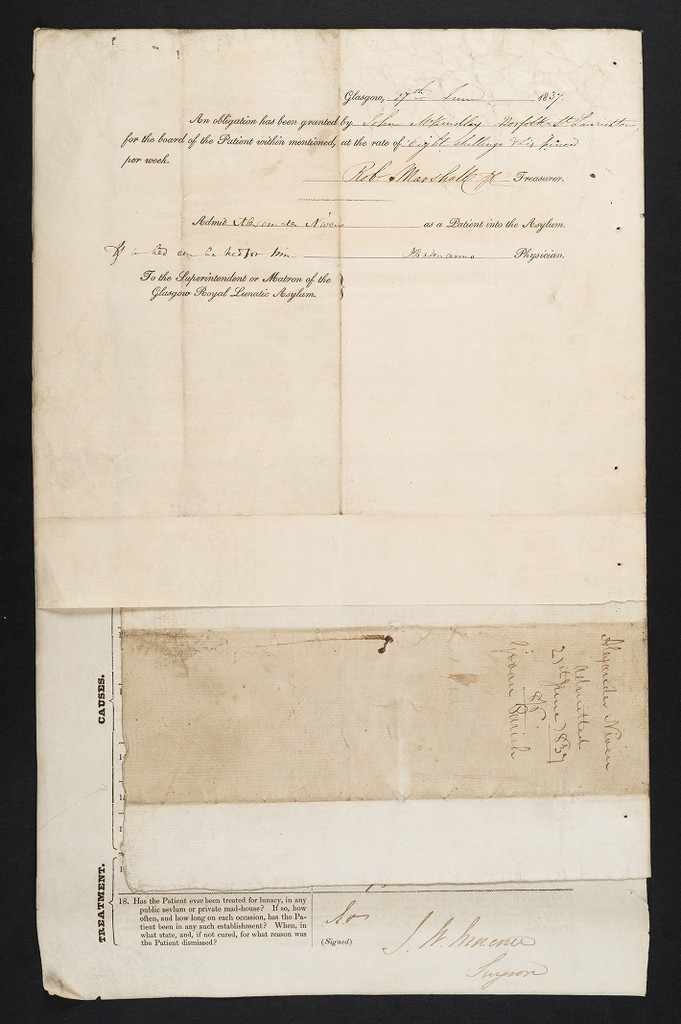 Glasgow, 17th June 1837.
An obligation has been granted by John McKindlay Norfolk St Laurieston
for the board of the Patient within mentioned, at the rate of Eight shillings & six pence
per week.
Rob Marshall Treasurer.
Admit Alexander Niven as a Patient into the Asylum.
If a bed can be had for him Physician.
To the Superintendent or Matron of the
Glasgow Royal Lunatic Asylum.
Alexander Niven
Admitted
June 1837
8/6
Govan Parish
CAUSES.
TREATMENT.
18. Has the Patient ever been treated for lunacy, in any
public asylum or private mad-house? If so, how
often, and how long on each occasion, has the Pa-
tient been in any such establishment? When, in
what state, and, if not cured, for what reason was
the Patient dismissed?
No
(Signed)
Surgeon